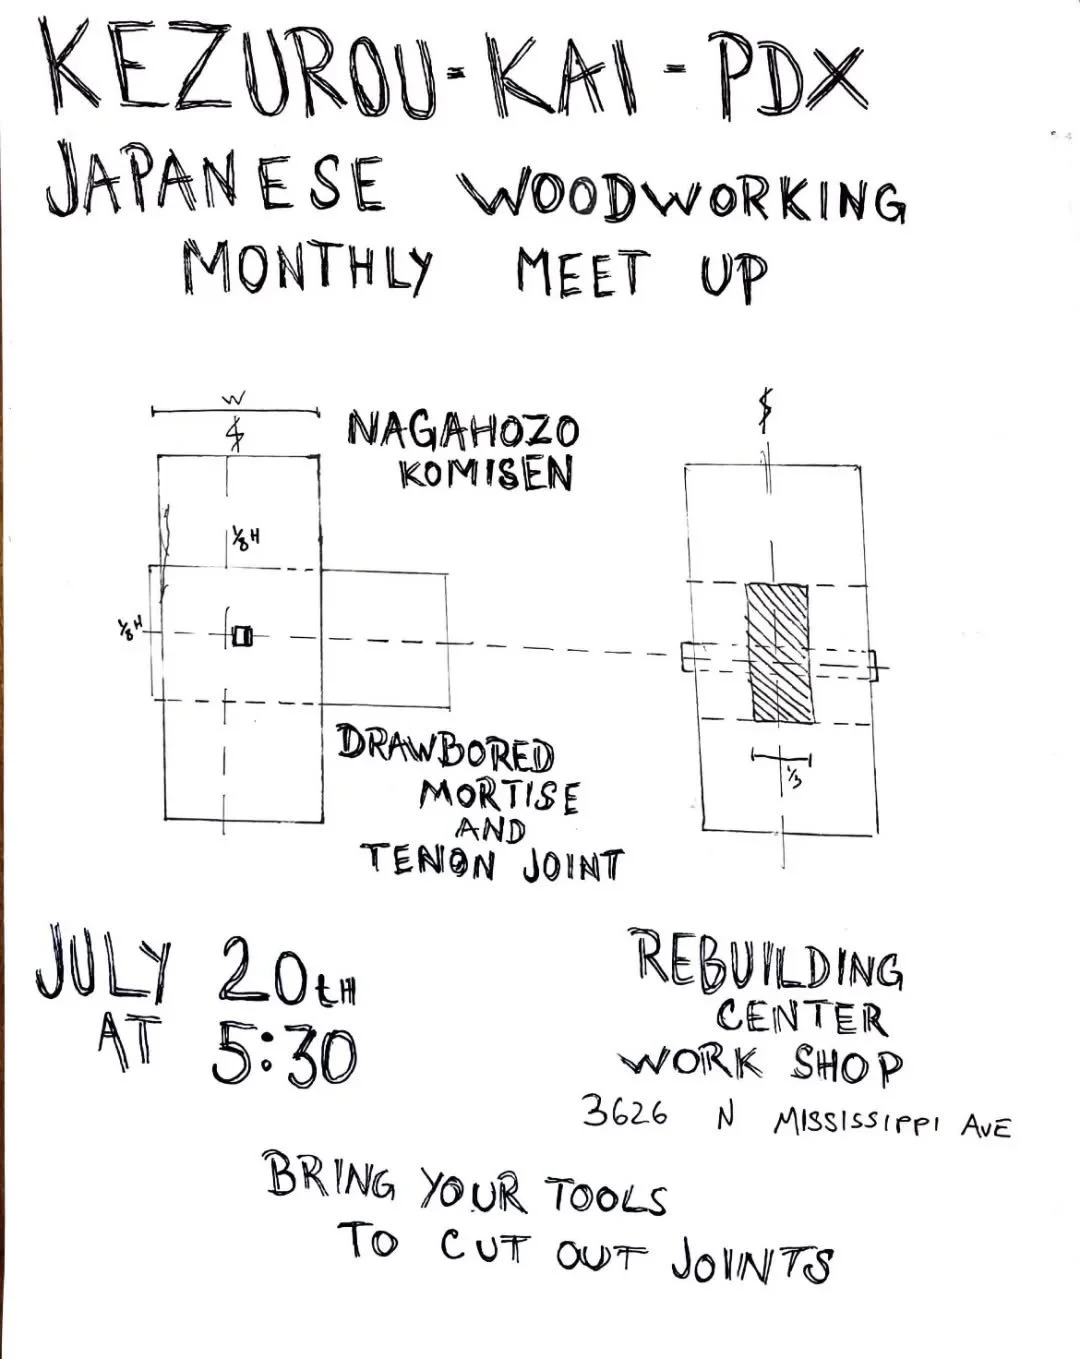 KEZUROU-KAI-PDX
JAPANESE WOODWORKING
MONTHLY MEET UP
W
NAGAHOZO
KOMISEN
1/8 H
1/8 H
DRAWBORED
MORTISE
AND
TENON JOINT
1/3
JULY 20TH
AT 5:30
REBUILDING
CENTER
WORK SHOP
3626 N MISSISSIPPI AVE
BRING YOUR TOOLS
TO CUT OUT JOINTS